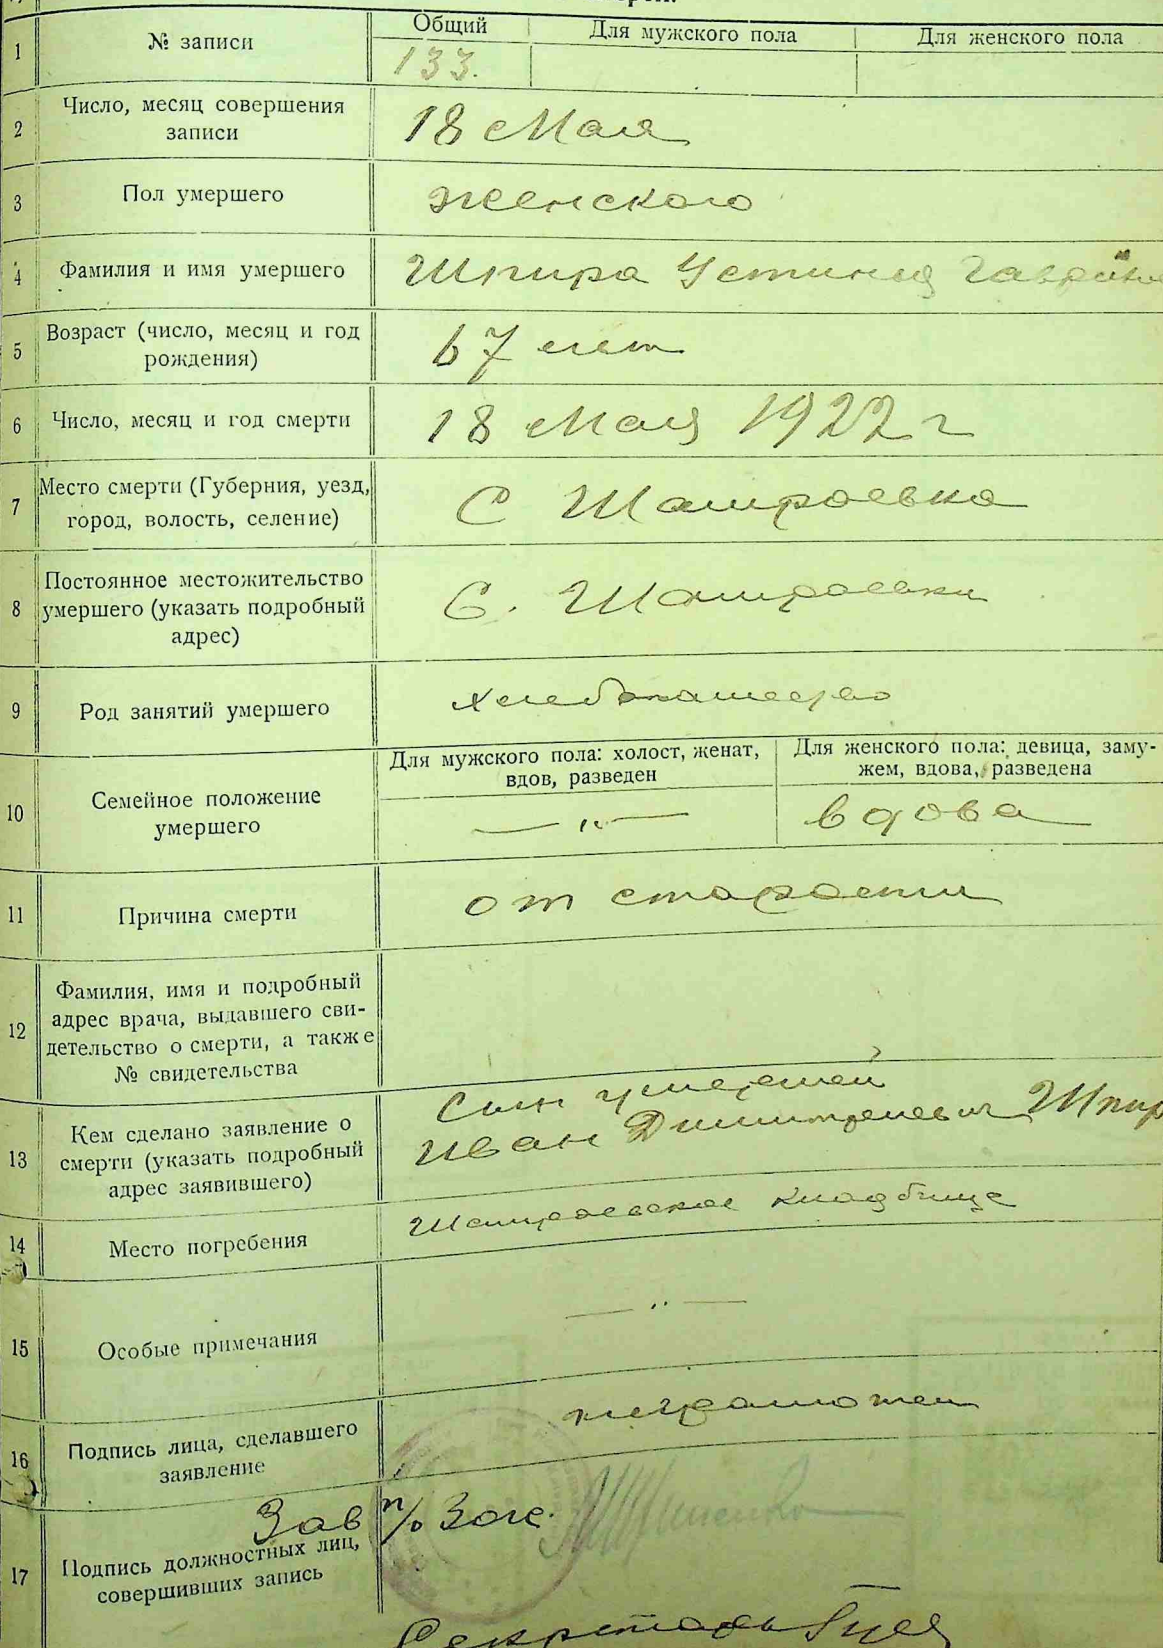 1
№ записи
Общий
Для мужского пола
Для женского пола
133.
2
Число, месяц совершения
записи
18 Мая
3
Пол умершего
женского
4
Фамилия и имя умершего
Шпира Устиния
5
Возраст (число, месяц и год
рождения)
67 лет
6
Число, месяц и год смерти
18 Мая 1922 г
7
Место смерти (Губерния, уезд,
город, волость, селение)
С Шамраевка
8
Постоянное местожительство
умершего (указать подробный
адрес)
С. Шамраевки
9
Род занятий умершего
хлебопашество
10
Семейное положение
умершего
Для мужского пола: холост, женат,
вдов, разведен
Для женского пола: девица, заму-
жем, вдова, разведена
— „ —
вдова
11
Причина смерти
от старости
12
Фамилия, имя и подробный
адрес врача, выдавшего сви-
детельство о смерти, а также
№ свидетельства
13
Кем сделано заявление о
смерти (указать подробный
адрес заявившего)
Сын умершей
Иван Дмитриевич Шпир
14
Место погребения
Шамраевское кладбище
15
Особые примечания
— „ —
16
Подпись лица, сделавшего
заявление
неграмотен
Зав п/о Загс.
17
Подпись должностных лиц,
совершивших запись
Секретарь